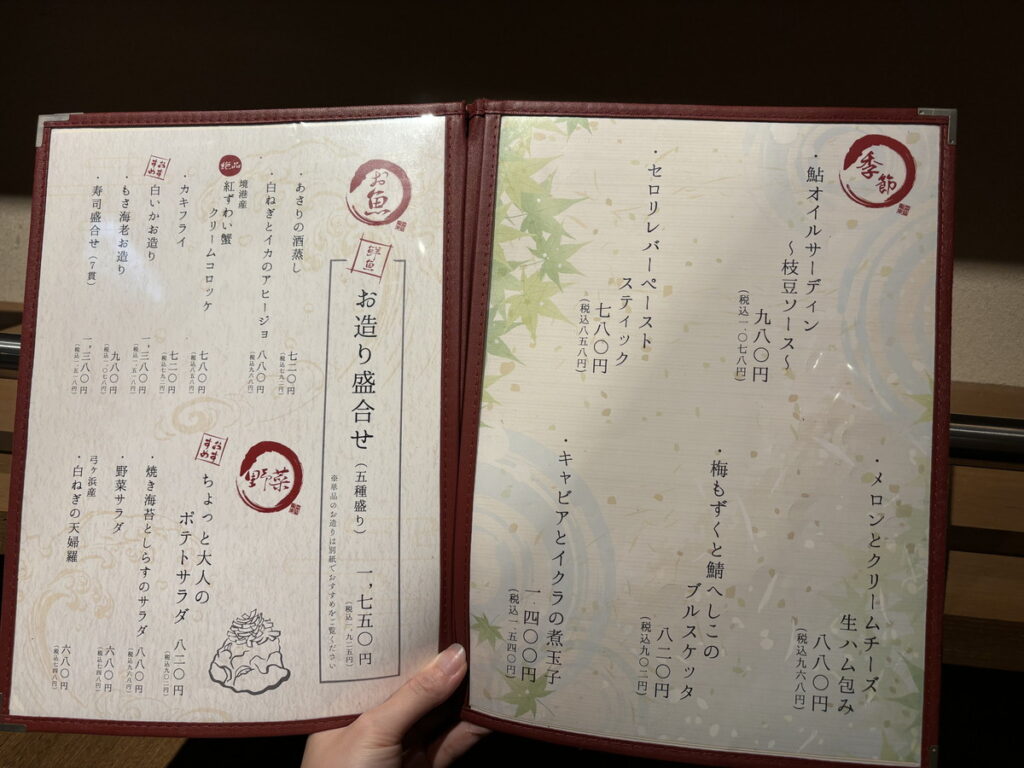 季節
・鮎オイルサーディン
～枝豆ソース～
九八〇円
(税込一、〇七八円)
・セロリレバーペースト
スティック
七八〇円
(税込八五八円)
・メロンとクリームチーズ
生ハム包み
八八〇円
(税込九六八円)
・梅もずくと鯖へしこの
ブルスケッタ
八二〇円
(税込九〇二円)
・キャビアとイクラの煮玉子
一、四〇〇円
(税込一、五四〇円)
お魚
鮮魚
お造り盛合せ(五種盛り) 一,七五〇円
(税込一、九二五円)
※単品のお造りは別紙でおすすめをご覧ください
・あさりの酒蒸し
七二〇円
(税込七九二円)
・白ねぎとイカのアヒージョ
八八〇円
(税込九六八円)
絶品
境港産
紅ずわい蟹
クリームコロッケ
七八〇円
(税込八五八円)
・カキフライ
七二〇円
(税込七九二円)
おすすめ
白いか お造り
一,三八〇円
(税込一、五一八円)
・もさ海老お造り
九八〇円
(税込一、〇七八円)
・寿司盛合せ(7貫)
一,三八〇円
(税込一、五一八円)
野菜
おすすめ
ちょっと大人の
ポテトサラダ
八二〇円
(税込九〇二円)
・焼き海苔としらすのサラダ
八八〇円
(税込九六八円)
・野菜サラダ
六八〇円
(税込七四八円)
弓ヶ浜産
・白ねぎの天婦羅
六八〇円
(税込七四八円)